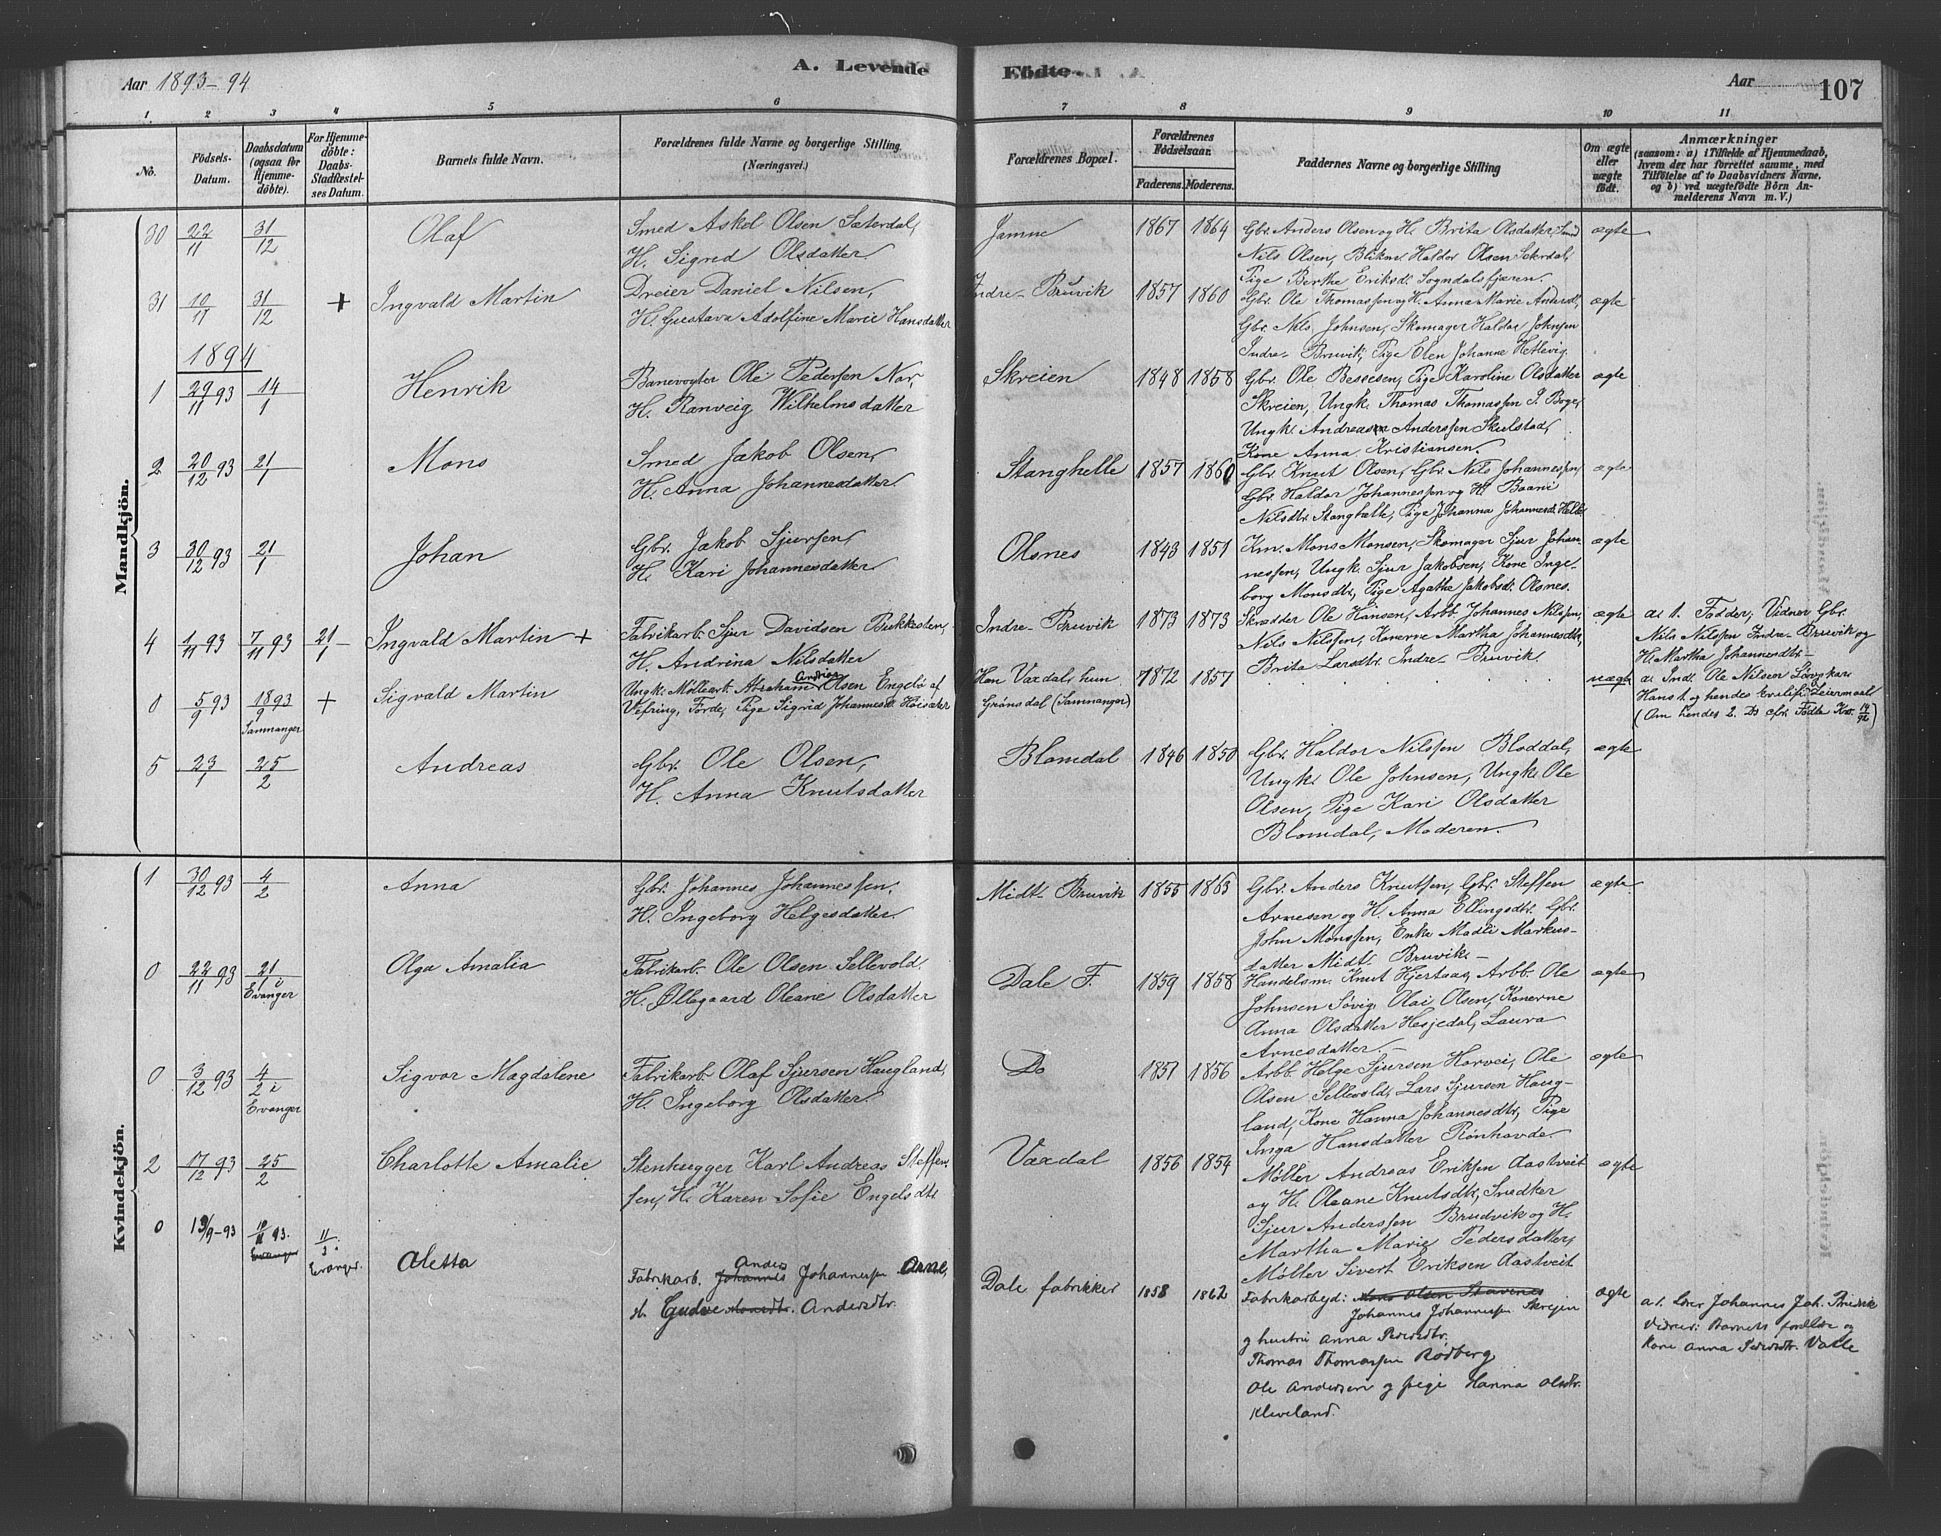 Aar 1893-94
A. Levende
Födte.
Aar
107
1 2 3 4 5 6 7 8 9 10 11
No.
Födsels-Datum.
Daabsdatum (ogsaa for Hjemme-döbte).
For Hjemme-döbte: Daabs-Stadfæstel-ses Datum.
Barnets fulde Navn.
Forældrenes fulde Navne og borgerlige Stilling (Næringsvei.)
Forældrenes Bopæl.
Forældrenes Födselsaar.
Faderens. Moderens.
Faddernes Navne og borgerlige Stilling
Om ægte eller uægte födt.
Anmærkninger
(saasom: a) i Tilfælde af Hjemmedaab, hvem der har forrettet samme, med Tilföielse af to Daabsvidners Navne, og b) ved uægtefödte Börn An-melderens Navn m. V.)
Mandkjön.
30 22/11 31/12 Olaf
Smed Askel Olsen Sæterdal,
H. Sigrid Olsdatter
Jamne 1867 1864
Gbr. Anders Olsen og H. Brita Olsdatter, Smed
Nils Olsen, Blikm. Haldor Olsen Sæterdal,
Pige Berthe Eriksd. Sogndalsfjæren.
ægte
31 10/11 31/12 + Ingvald Martin
Dreier Daniel Nilsen,
H. Gustava Adolfine Marie Hansdatter
Indre-Bruvik 1857 1860
Gbr. Ole Thomassen og H. Anna Marie Andersdt,
Gbr. Nils Johnsen, Skomager Haldor Johnsen
Indre-Bruvik, Pige Elen Johanne Hetlevig.
ægte
1894
1 29/11 93 14/1 Henrik
Banevogter Ole Pedersen Nor,
H. Ranveig Wilhelmsdatter
Skreien 1848 1858
Gbr. Ole Bessesen, Pige Karoline Olsdatter
Skreien, Ungk. Thomas Thomassen I. Boge,
Ungk. Andreas Anderssen Skulstad,
Kone Anna Kristiansen.
ægte
2 20/12 93 21/1 Mons
Smed Jakob Olsen,
H. Anna Johannesdatter
Stanghelle 1857 1860
Gbr. Knut Olsen, Gbr. Nils Johannessen,
Gbr. Haldor Johannessen og H. Baani
Nilsdtr. Stanghelle, Pige Johanna Johannesd. Helle
ægte
3 30/12 93 21/1 Johan
Gbr. Jakob Sjursen,
H. Kari Johannesdatter
Olsnes 1843 1851
Km. Mons Monsen, Skomager Sjur Johan-
nessen, Ungk. Sjur Jakobsen, Kone Inge-
borg Monsdtr, Pige Agathe Jakobsd. Olsnes.
ægte
4 1/11 93 7/11 93 21/1 Ingvald Martin +
Fabrikarb. Sjur Davidsen Bukkesten,
H. Andrina Nilsdatter
Indre-Bruvik 1873 1873
Skrædder Ole Hansen, Arb. Johannes Nilssen,
Nils Nilssen, Konerne Martha Johannesdtr,
Brita Larsdtr. Indre-Bruvik.
ægte
a. 1. Fader; Vidner Gbr.
Nils Nilssen Indre-Bruvik og
H. Martha Johannesdtr.
0 5/9 93 18 93/9 Samnanger + Sigvald Martin
Ungk. Möllearb. Abraham Andreas Olsen Engebö af
Vefring, Förde, Pige Sigrid Johannesd. Höisæter
Han Vaxdal, hun Grönsdal (Samnanger) 1872 1857
uægte
a. Indl. Ole Nilsen
Hans 1. og hendes Leiermaal
(Om hendes 2. Do cfr. Födte Kv. 14/92)
5 23/1 25/2 Andreas
Gbr. Ole Olsen,
H. Anna Knutsdatter
Blomdal 1846 1850
Gbr. Haldor Nilssen Bloddal,
Ungk. Ole Johnsen, Ungk. Ole
Olsen, Pige Kari Olsdatter
Blomdal, Moderen.
ægte
Kvindekjön.
1 30/12 93 4/2 Anna
Gbr. Johannes Johannessen.
H. Ingeborg Helgesdatter
Midt-Bruvik 1855 1863
Gbr. Anders Knutsen, Gbr. Steffen
Arnesen og H. Anna Ellingsdtr. Gbr.
John Monssen, Enke Madli Markus-
datter Midt-Bruvik.
ægte
0 22/11 93 21/1 i Evanger Olga Amalia
Fabrikarb. Ole Olsen Sellevold.
H. Øllegaard Oleane Olsdatter
Dale F. 1859 1858
Handelsm. Knut Hjertaas, Arbb. Ole
Johnsen Sövig, Olai Olsen, Konerne
Anna Olsdatter Hesjedal, Laura
Arnesdatter.
ægte
0 3/12 93 4/2 i Evanger Sigvor Magdalene
Fabrikarb. Olaf Sjursen Haugland,
H. Ingeborg Olsdatter
Do 1857 1856
Arbb. Helge Sjursen Horvei, Ole
Olsen Sellevold, Lars Sjursen Haug-
land, Kone Hanna Johannesdtr, Pige
Inga Hansdatter Rönhovde.
ægte
2 17/12 93 25/2 Charlotte Amalie
Stenhugger Karl Andreas Steffen-
sen, H. Karen Sofie Engelsdtr
Vaxdal 1856 1854
Möller Andreas Eriksen Aastveit
og H. Oleane Knutsdtr, Snedker
Sjur Anderssen Brudvik og H.
Martha Marie Pedersdatter,
Möller Sivert Eriksen Aastveit
ægte
0 19/9-93 93. Evanger 11/3 i Evanger. Aletta
Fabrikarb. Johannes Anders Johannessen Arne,
H. Gudve Andersdtr.
Dale fabrikker 1858 1862
Fabrikarbejd: Olsen Stavenes
Johannes Johannessen Skrejen
g hustru Anna Pedersdtr.
Thomas Thomassen Rödberg
Ole Andersen g pige Hanna Olsdtr.
Kleveland.
ægte
a. 1. Lærer Johannes Joh. Bruvik
Vidner: Barnets forældre og
kone Anna Pedersdtr. Dale